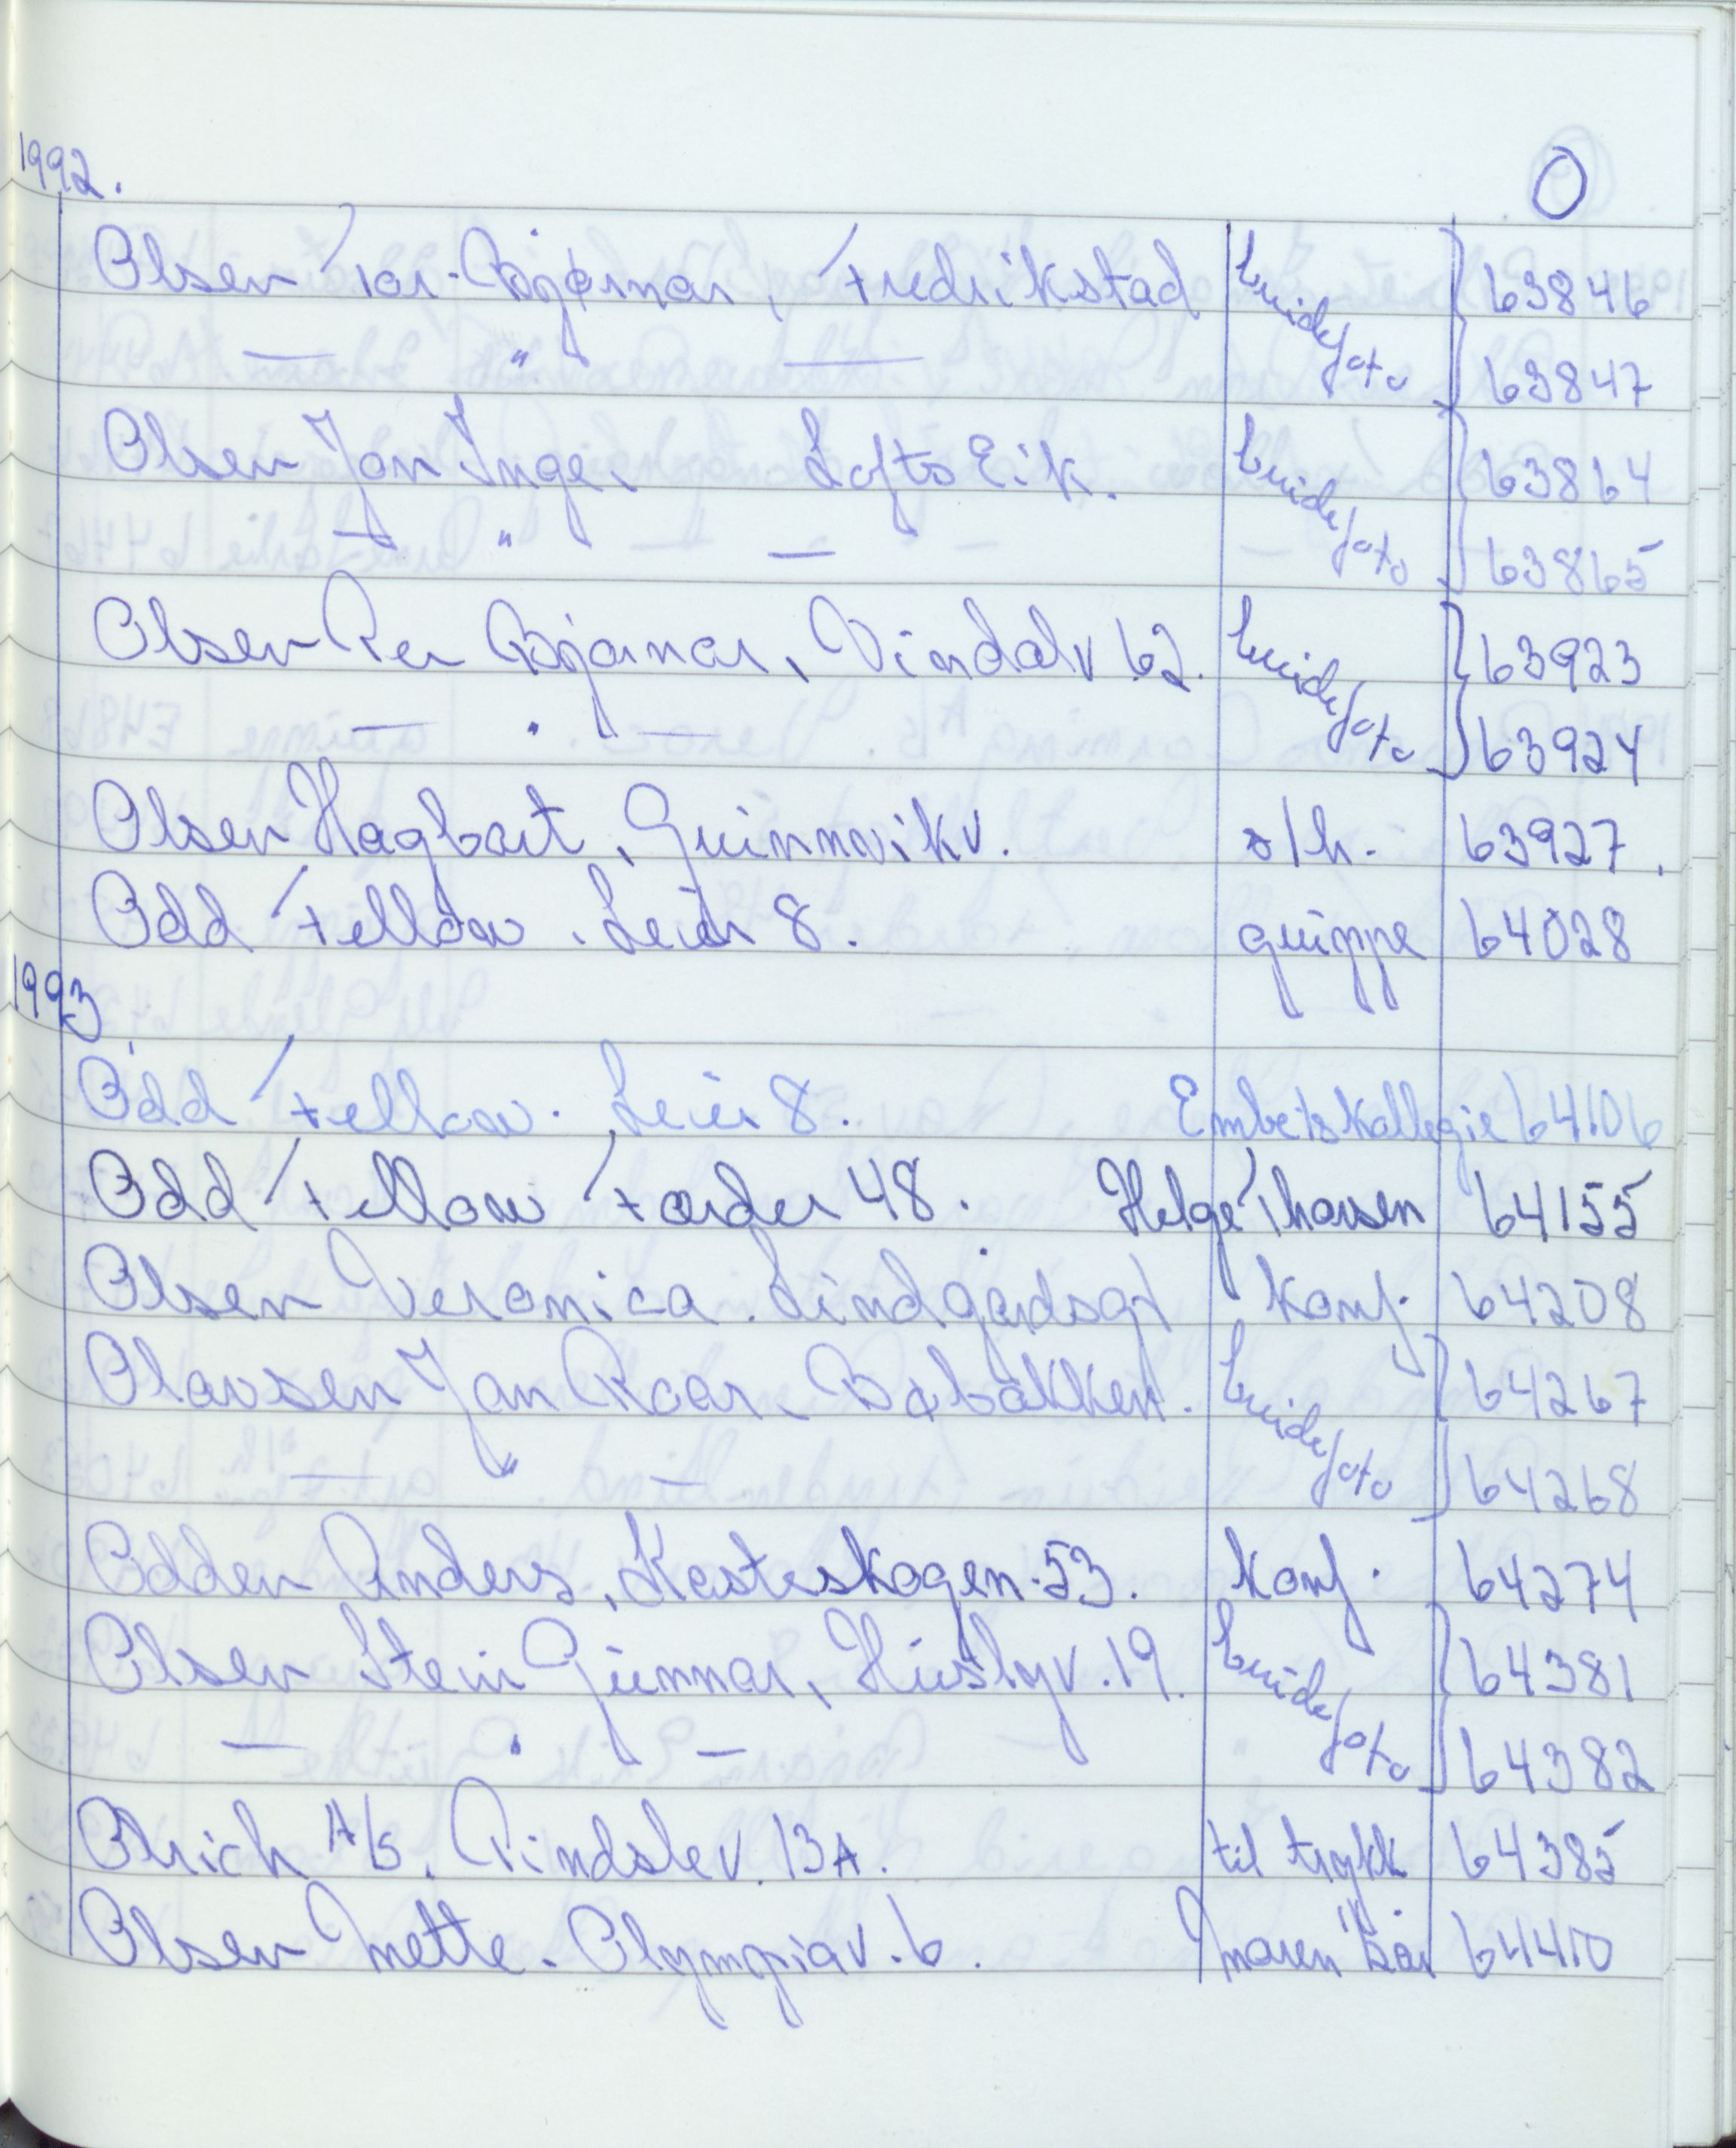 1992.
O
Olsen Tor-Bjørnar, Fredrikstad brudefoto 63846
— " — 63847
Olsen Jan Inge, Lofts Eik. brudefoto 63864
— " — 63865
Olsen Per Bjarnar, Vindalv 62. brudefoto 63923
— " — 63924
Olsen Hagbart, Grinnvikv. s/h. 63927.
Odd Fellow. Leir 8. gruppe 64028
1993.
Odd Fellow. Leir 8. Embetskollegie 64106
Odd Fellow Færder 48. Helge Thorsen 64155
Olsen Veronica. Lindgårdsgt konf. 64208
Olavsen Jan Roar. Bøbakken. brudefoto 64267
— " — 64268
Odden Anders, Hesteskogen.53. konf. 64274
Olsen Stein Gunnar, Huslyv.19. brudefoto 64381
— " — 64382
Olrich A/S. Rindalev.13A. til trykk 64385
Olsen Mette. Olympiav.6. Maren 64410